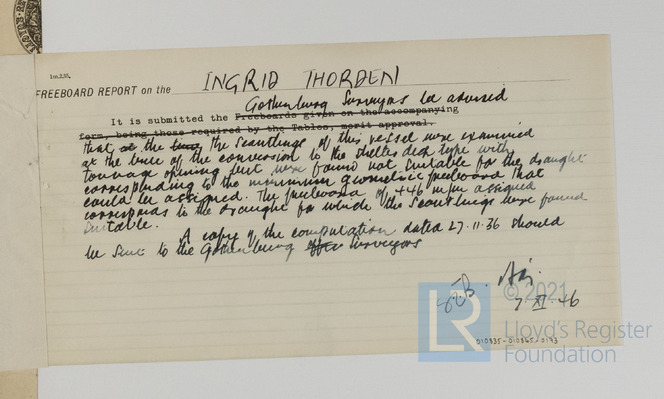 LLOYD'S RE
1m.2.35.
FREEBOARD REPORT on the INGRID THORDEN
Gothenburg Surveyors be advised
It is submitted the Freeboards given on the accompanying
form, being those required by the Tables, merit approval.
that at the time the scantlings of this vessel were examined
at the time of the conversion to the shelter deck type with
tonnage opening but were found not suitable for the draught
corresponding to the minimum geometric freeboard that
could be assigned. The freeboard of 446 m/m assigned
corresponds to the draught for which the scantlings were found
suitable.
A copy of the computation dated 27.11.36 should
be sent to the Gothenburg Surveyors
7 XI 46
© 2021
LR
Lloyd's Register
Foundation
010835-010865-0193